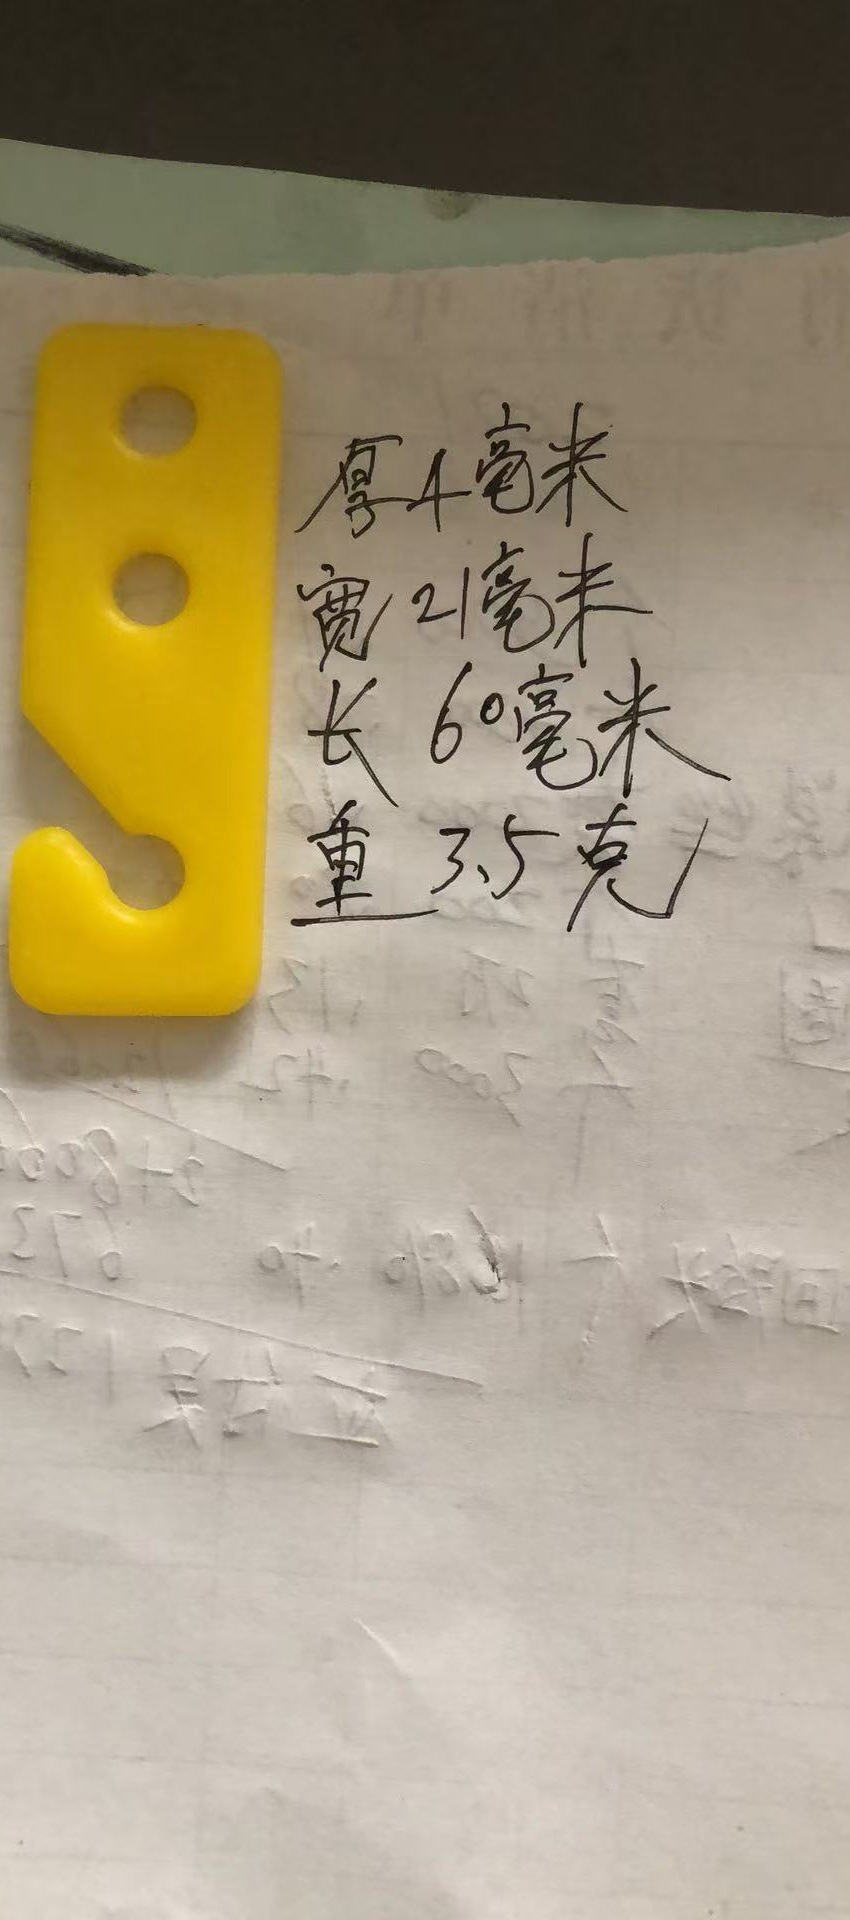 厚4毫米
宽21毫米
长60毫米
重3.5克